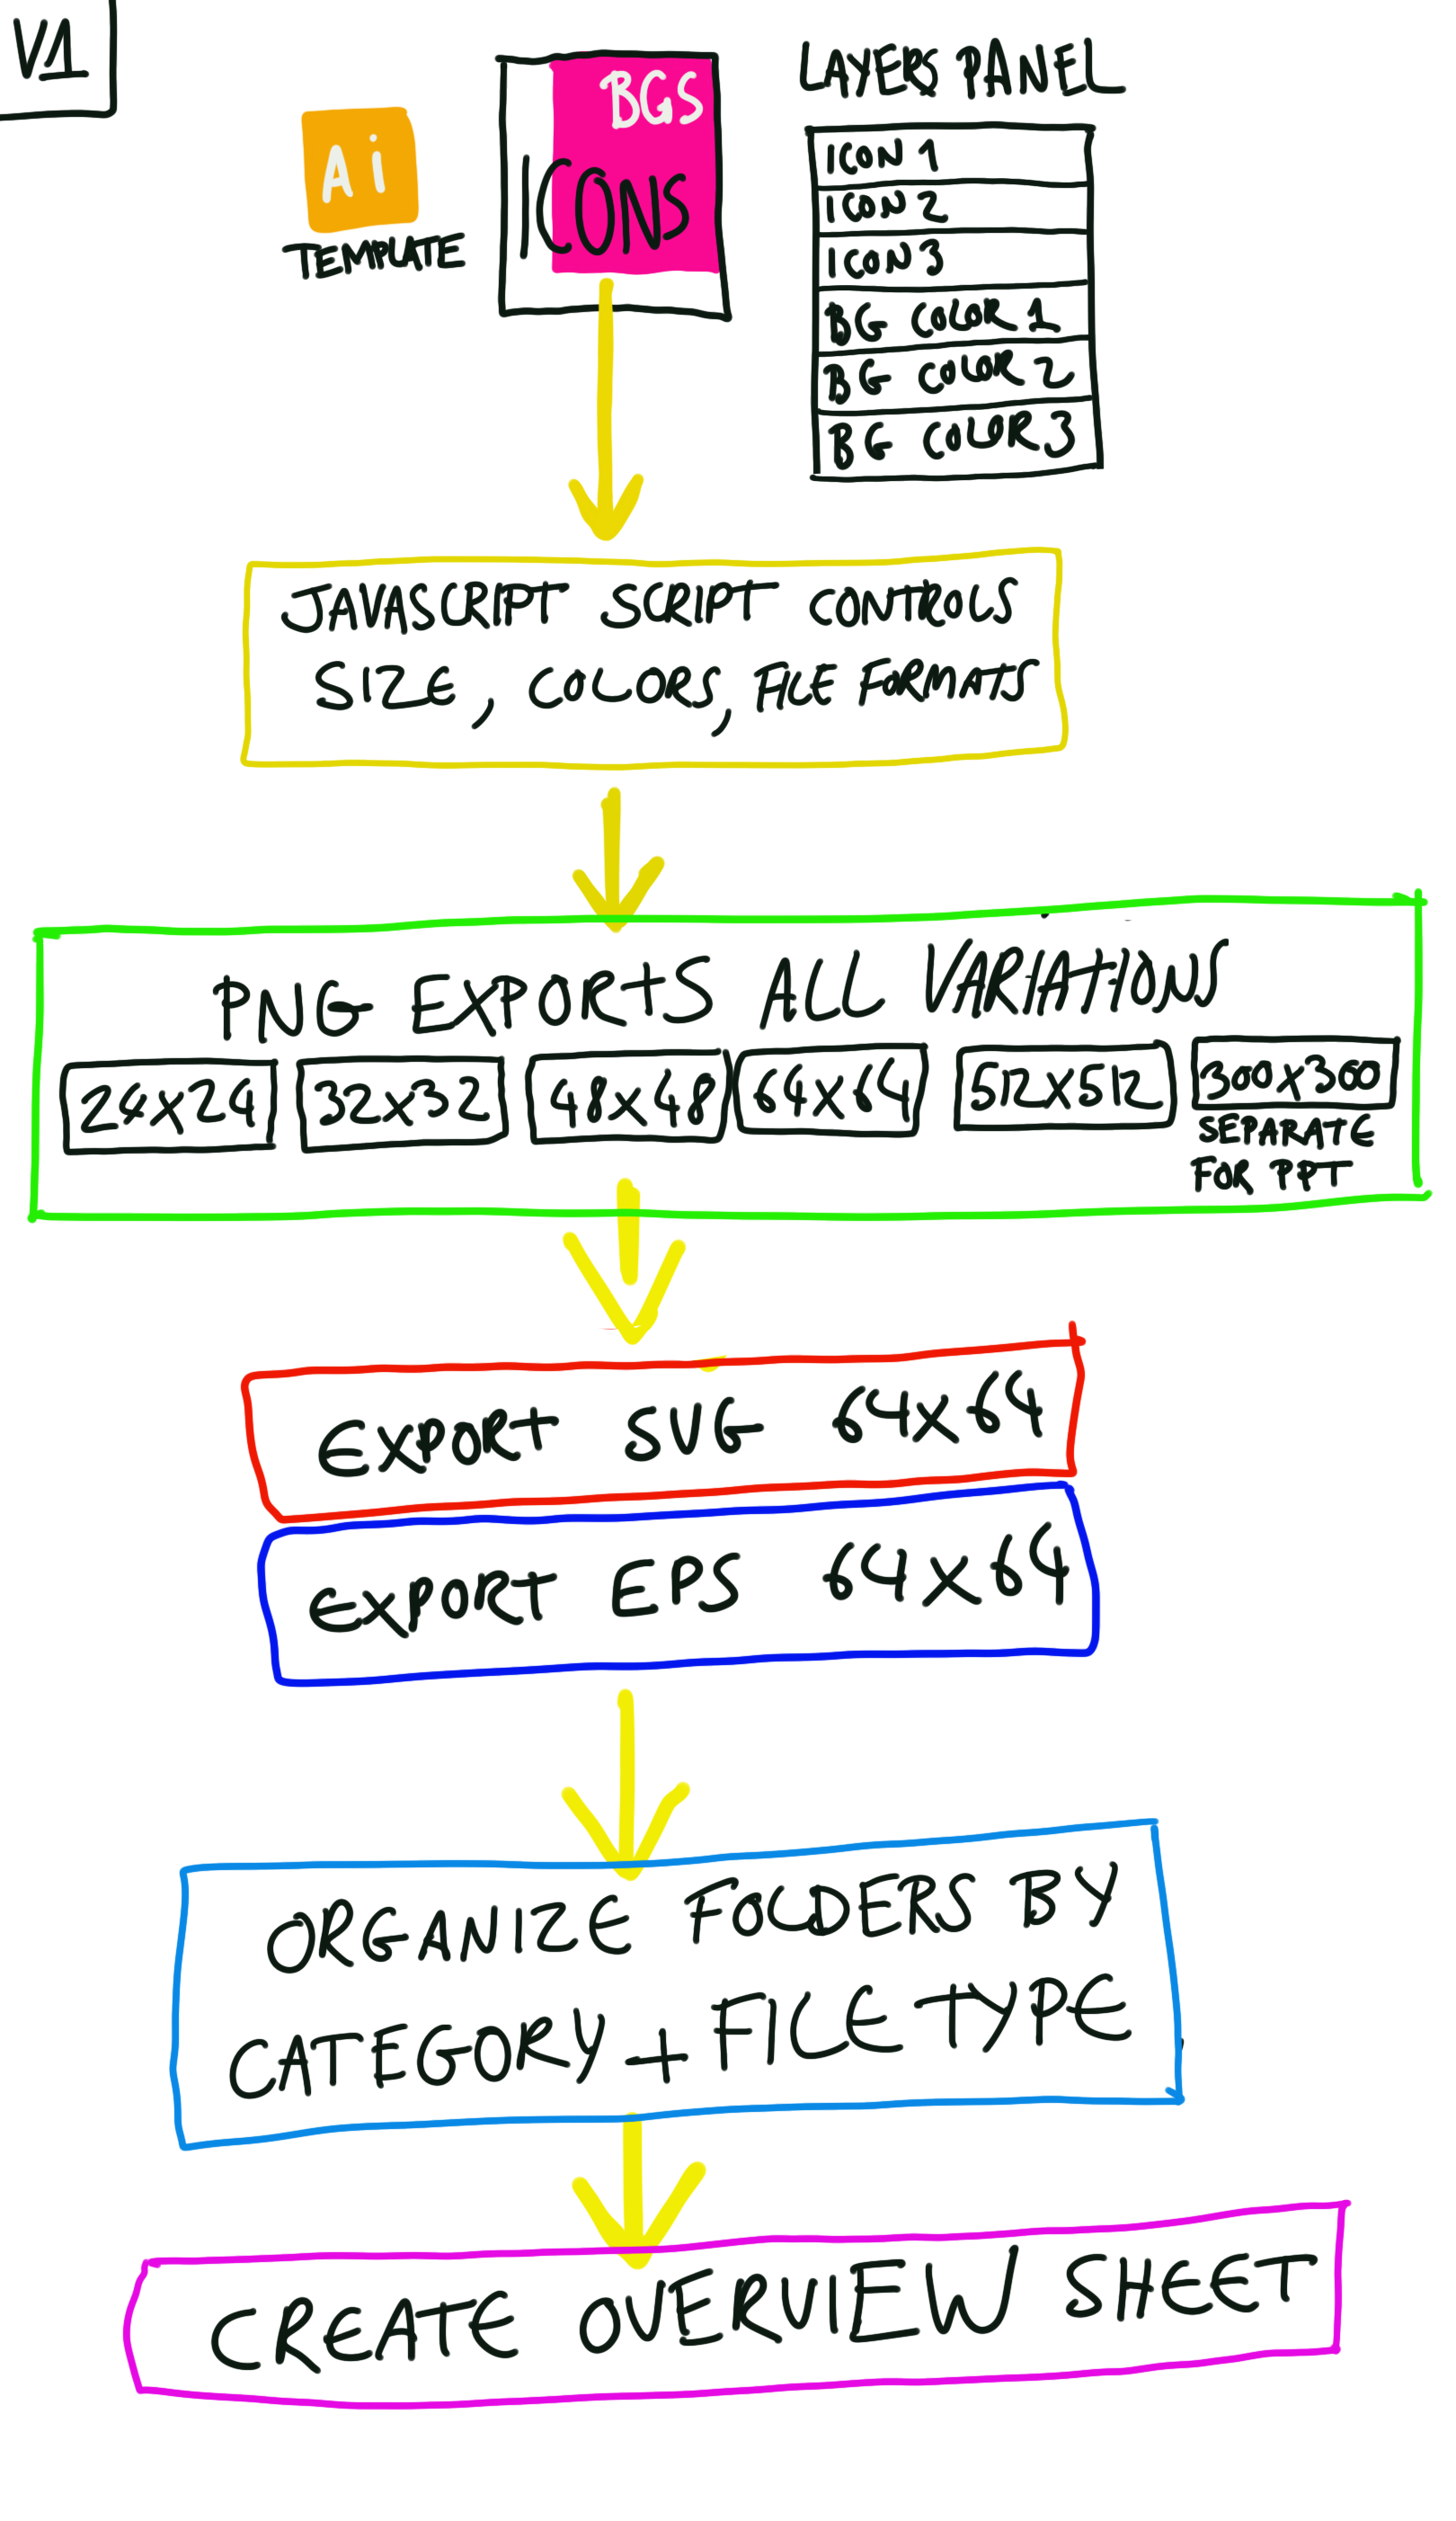 V1
Ai
TEMPLATE
BGS
ICONS
LAYERS PANEL
ICON 1
ICON 2
ICON 3
BG COLOR 1
BG COLOR 2
BG COLOR 3
JAVASCRIPT SCRIPT CONTROLS
SIZE, COLORS, FILE FORMATS
PNG EXPORTS ALL VARIATIONS
24X24
32X32
48X48
64X64
512X512
300X300
SEPARATE
FOR PPT
EXPORT SVG 64X64
EXPORT EPS 64X64
ORGANIZE FOLDERS BY
CATEGORY + FILE TYPE
CREATE OVERVIEW SHEET